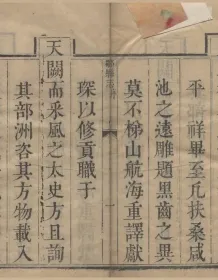 平祥畢至凡扶桑咸
池之遠雕題黑齒之異
莫不梯山航海重譯獻
琛以修貢職于
天闕而采風之太史方且詢
其部洲咨其方物載入